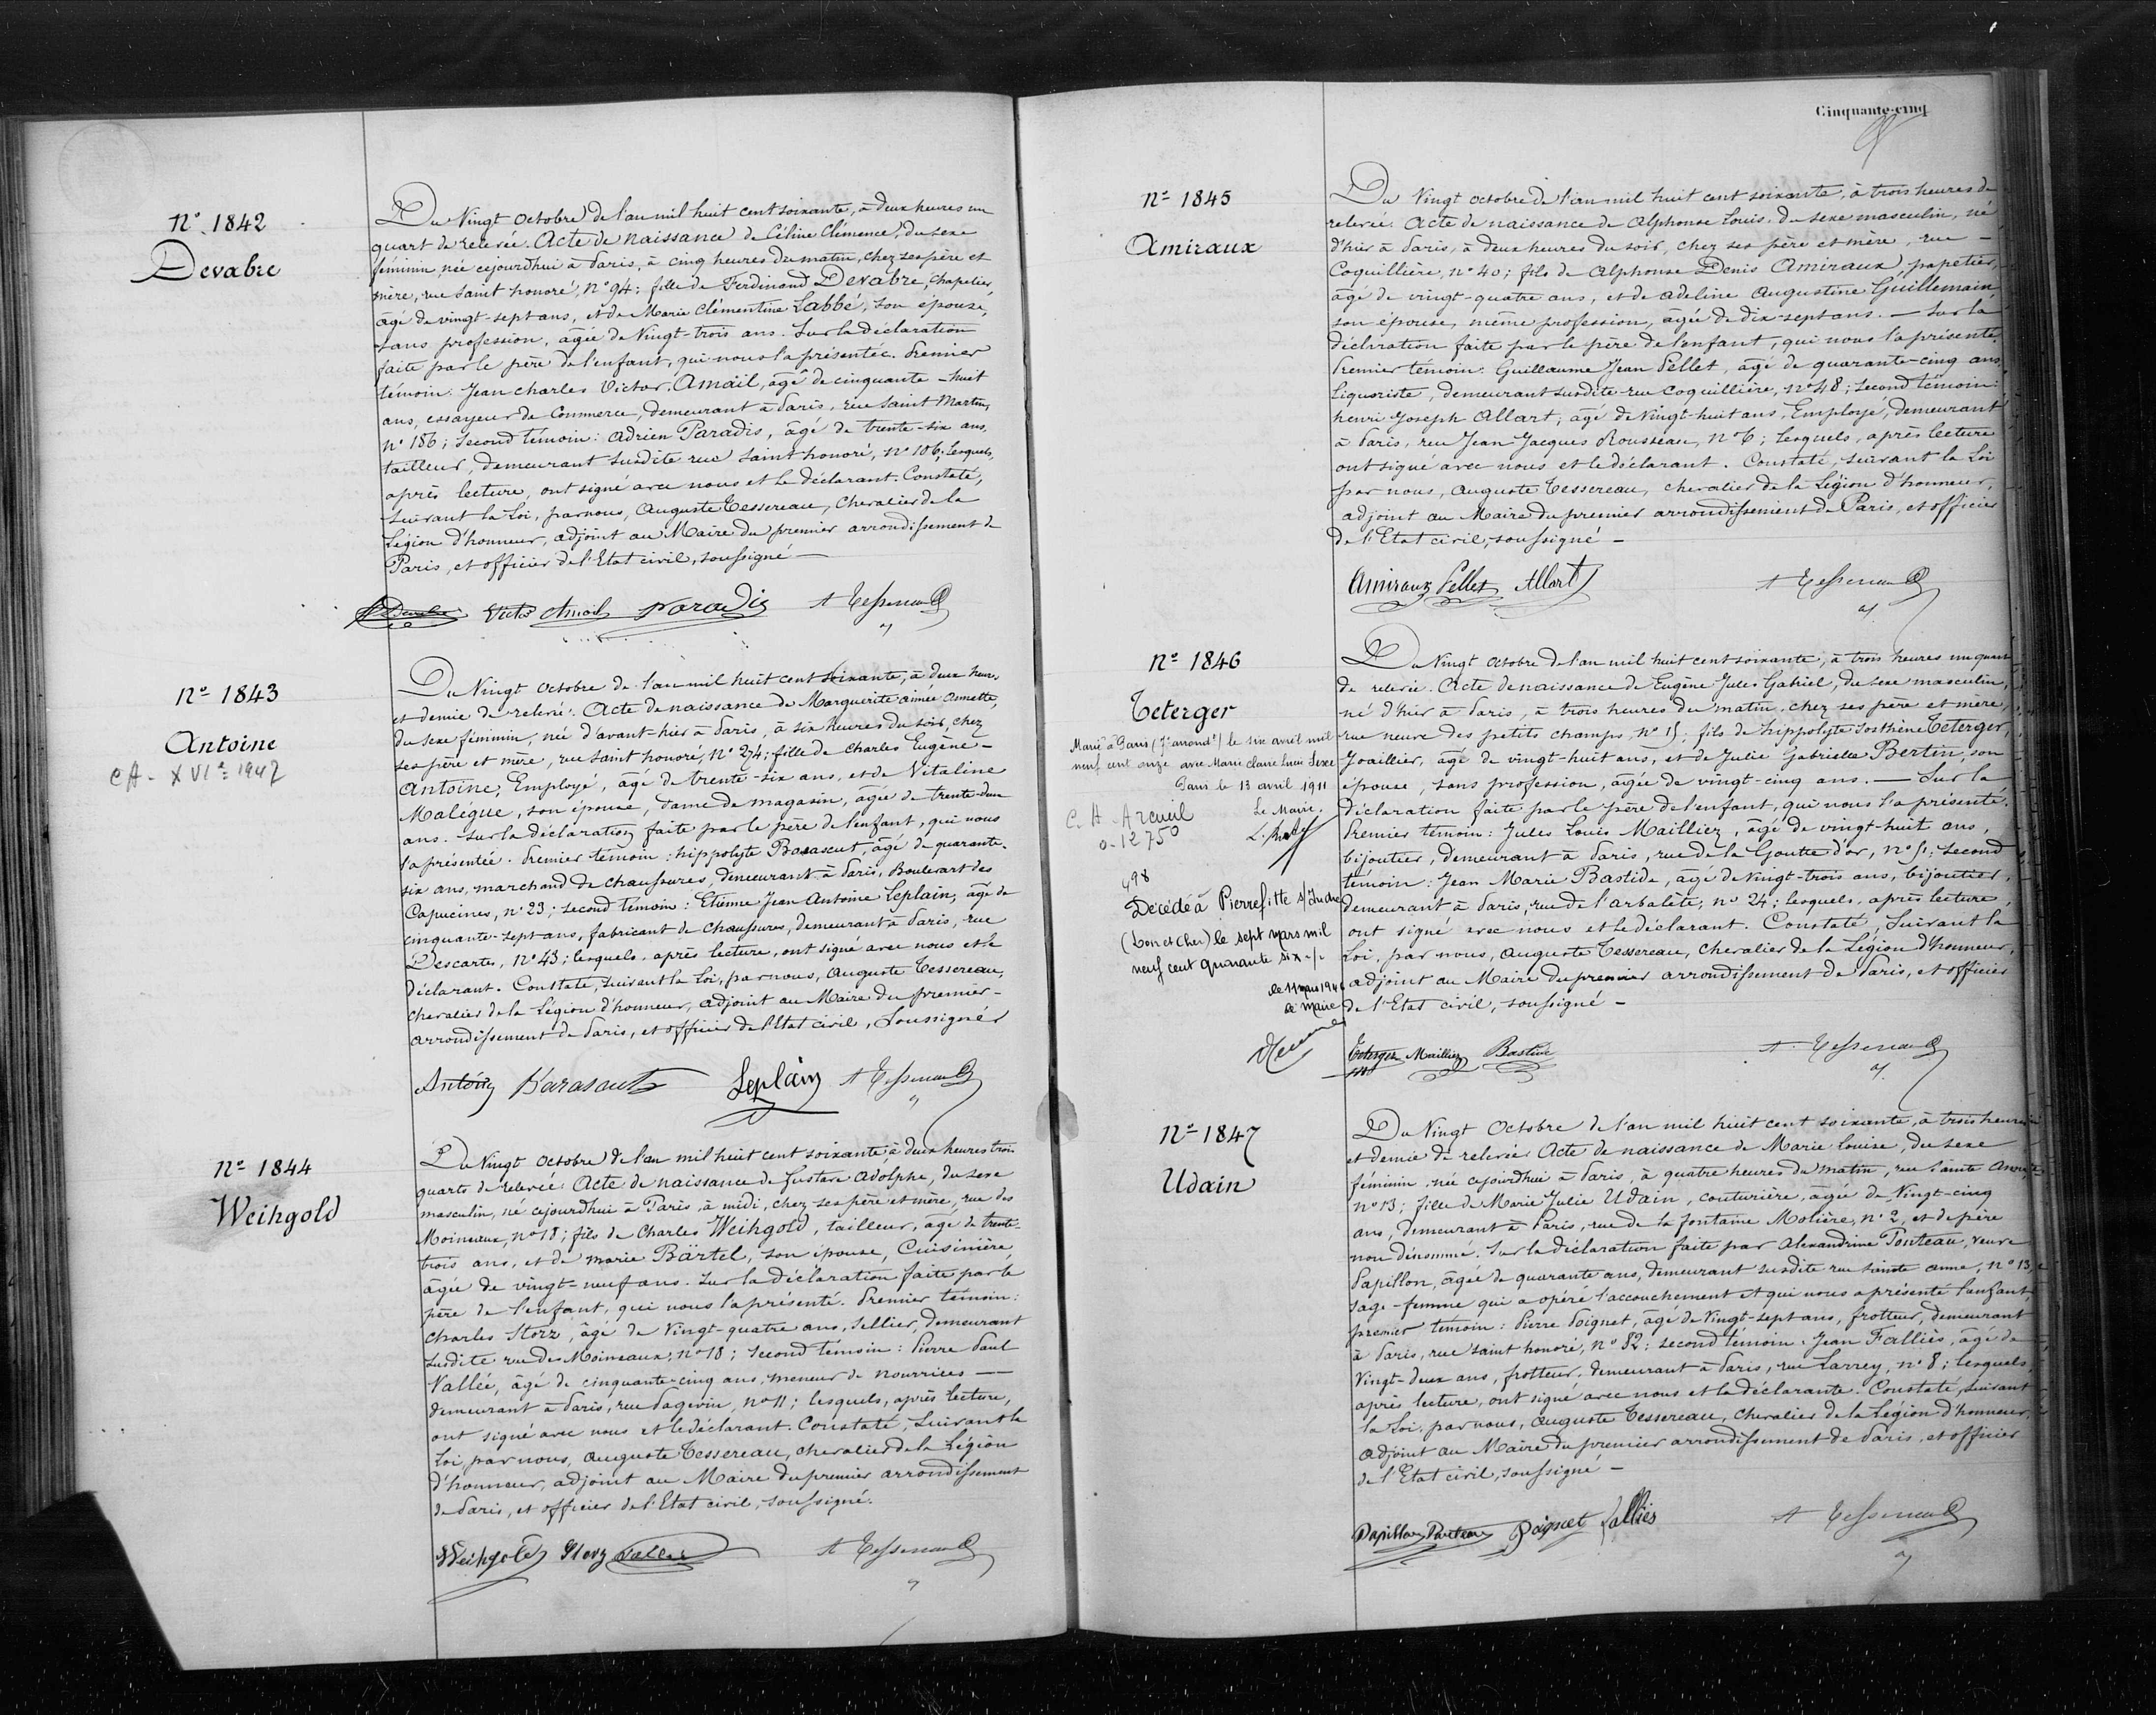 N° 1842
Devabre
Du Vingt octobre de l'an mil huit cent soixante, à deux heures un
quart de relevée. Acte de naissance de Céline Clémence, du sexe
féminin, née cejourdhui à Paris, à cinq heures du matin, chez ses père et
mère, rue saint honoré, n° 94; fille de Ferdinand Devabre, Chapelier,
âgé de vingt-sept ans, et de Marie Clémentine Labbé, son épouse,
sans profession, âgée de Vingt-trois ans. Sur la déclaration
faite par le père de l'enfant, qui nous l'a présentée. Premier
témoin: Jean Charles Victor Amail, âgé de cinquante-huit
ans, essayeur de Commerce, demeurant à Paris, rue Saint Martin,
n° 186; second témoin: Adrien Paradis, âgé de trente-six ans,
tailleur, demeurant susdite rue saint honoré, n° 106; lesquels,
après lecture, ont signé avec nous et le déclarant. Constaté,
suivant la Loi, par nous, Auguste Tessereau, Chevalier de la
Légion d'honneur, adjoint au Maire du premier arrondissement de
Paris, et officier de l'Etat civil, soussigné —
Victor Amail Paradis A Tessereau
N° 1843
Antoine
CA - XVIe 1942
Du Vingt octobre de l'an mil huit cent soixante, à deux heures
et demie de relevée. Acte de naissance de Marguerite aimée Annette,
du sexe féminin, née d'avant-hier à Paris, à six heures du soir, chez
ses père et mère, rue saint honoré, n° 274; fille de Charles Eugène -
Antoine, Employé, âgé de trente-six ans, et de Vitaline
Malègue, son épouse, dame de magasin, âgée de trente-deux
ans. Sur la déclaration faite par le père de l'enfant, qui nous
l'a présentée. Premier témoin: hippolyte Barascut, âgé de quarante-
six ans, marchand de chaussures, demeurant à Paris, Boulevart des
Capucines, n° 23; second témoin: Etienne Jean Antoine Leplain, âgé de
cinquante-sept ans, fabricant de chaussures, demeurant à Paris, rue
Descartes, n° 43; lesquels, après lecture, ont signé avec nous et le
déclarant. Constaté, suivant la Loi, par nous, Auguste Tessereau,
chevalier de la Légion d'honneur, adjoint au Maire du premier -
arrondissement de Paris, et officier de l'Etat civil, Soussigné
Antoine Barascut Leplain A Tessereau
N° 1844
Weihgold
Du Vingt octobre de l'an mil huit cent soixante, à deux heures trois
quarts de relevée. Acte de naissance de Gustave Adolphe, du sexe
masculin, né cejourdhui à Paris, à midi, chez ses père et mère, rue des
Moineaux, n° 18; fils de Charles Weihgold, tailleur, âgé de trente-
trois ans, et de marie Bärtel, son épouse, Cuisinière,
âgée de vingt-neuf ans. Sur la déclaration faite par le
père de l'enfant, qui nous l'a présenté. Premier témoin:
Charles Storz, âgé de Vingt-quatre ans, Sellier, demeurant
susdite rue des Moineaux, n° 18; second témoin: Pierre Paul
Vallée, âgé de cinquante-cinq ans, meneur de nourrices —
demeurant à Paris, rue Pagevin, n° 11; lesquels, après lecture,
ont signé avec nous et le déclarant. Constaté, Suivant la
Loi, par nous, Auguste Tessereau, chevalier de la Légion
d'honneur, adjoint au Maire du premier arrondissement
de Paris, et officier de l'Etat civil, soussigné.
Weihgold Storz Vallée A Tessereau
Cinquante-cinq
N° 1845
Amiraux
Du Vingt octobre de l'an mil huit cent soixante, à trois heures de
relevée. Acte de naissance de Alphonse Louis, du sexe masculin, né
d'hier à Paris, à deux heures du soir, chez ses père et mère, rue —
Coquillière, n° 40; fils de Alphonse Denis Amiraux, papetier,
âgé de vingt-quatre ans, et de Adeline Augustine Guillemain
son épouse, même profession, âgée de dix-sept ans. — Sur la
déclaration faite par le père de l'enfant, qui nous l'a présenté.
Premier témoin: Guillaume Jean Pellet, âgé de quarante-cinq ans,
Liquoriste, demeurant susdite rue Coquillière, n° 48; second témoin:
henri Joseph Allart, âgé de Vingt-huit ans, Employé, demeurant
à Paris, rue Jean-Jacques Rousseau, n° 6; lesquels, après lecture
ont signé avec nous et le déclarant. Constaté, suivant la Loi
par nous, Auguste Tessereau, chevalier de la Légion d'honneur,
adjoint au Maire du premier arrondissement de Paris, et officier
de l'Etat civil, soussigné —
Amiraux Pellet Allart A Tessereau
N° 1846
Teterger
Marié à Paris (7e arrondt) le six avril mil
neuf cent onze avec Marie Claire Lucie Sexe
Paris le 13 avril 1911
Le Maire.
C. A - Arcueil
0-12750
498
Décédé à Pierrefitte s/Sudre
(Loir et Cher) le sept mars mil
neuf cent quarante six -/-
le 11 mars 1946
Le Maire
Du Vingt octobre de l'an mil huit cent soixante, à trois heures un quart
de relevée. Acte de naissance de Eugène Jules Gabriel, du sexe masculin,
né d'hier à Paris, à trois heures du matin, chez ses père et mère,
rue neuve des petits champs, n° 15; fils de hippolyte Sosthène Teterger,
Joaillier, âgé de vingt-huit ans, et de Julie Gabrielle Bertin, son
épouse, sans profession, âgée de vingt-cinq ans. — Sur la
déclaration faite par le père de l'enfant, qui nous l'a présenté.
Premier témoin: Jules Louis Mailliez, âgé de vingt-huit ans,
bijoutier, demeurant à Paris, rue de la Goutte d'or, n° 51; second
témoin: Jean Marie Bastide, âgé de Vingt-trois ans, bijoutier,
demeurant à Paris, rue de l'arbalète, n° 24; lesquels, après lecture,
ont signé avec nous et le déclarant. Constaté, Suivant la
Loi, par nous, Auguste Tessereau, Chevalier de la Légion d'honneur,
adjoint au Maire du premier arrondissement de Paris, et officier
de l'Etat civil, soussigné —
Teterger Mailliez Bastide A Tessereau
N° 1847
Udain
Du Vingt Octobre de l'an mil huit cent soixante, à trois heures
et demie de relevée. Acte de naissance de Marie Louise, du sexe
féminin, née cejourdhui à Paris, à quatre heures du matin, rue Sainte Anne,
n° 13; fille de Marie Julie Udain, couturière, âgée de Vingt-cinq
ans, demeurant à Paris, rue de la fontaine Molière, n° 2, et de père
non dénommé. Sur la déclaration faite par Alexandrine Ponteau, veuve
Papillon, âgée de quarante ans, demeurant susdite rue Sainte anne, n° 13,
sage-femme qui a opéré l'accouchement et qui nous a présenté l'enfant,
premier témoin: Pierre Poignet, âgé de Vingt-sept ans, frotteur, demeurant
à Paris, rue Saint honoré, n° 82; second témoin: Jean Falliès, âgé de
Vingt-deux ans, frotteur, demeurant à Paris, rue Larrey, n° 8; lesquels,
après lecture, ont signé avec nous et la déclarante. Constaté, suivant
la Loi, par nous, Auguste Tessereau, Chevalier de la Légion d'honneur,
adjoint au Maire du premier arrondissement de Paris, et officier
de l'Etat civil, soussigné —
Papillon Ponteau Poignet Falliès A Tessereau